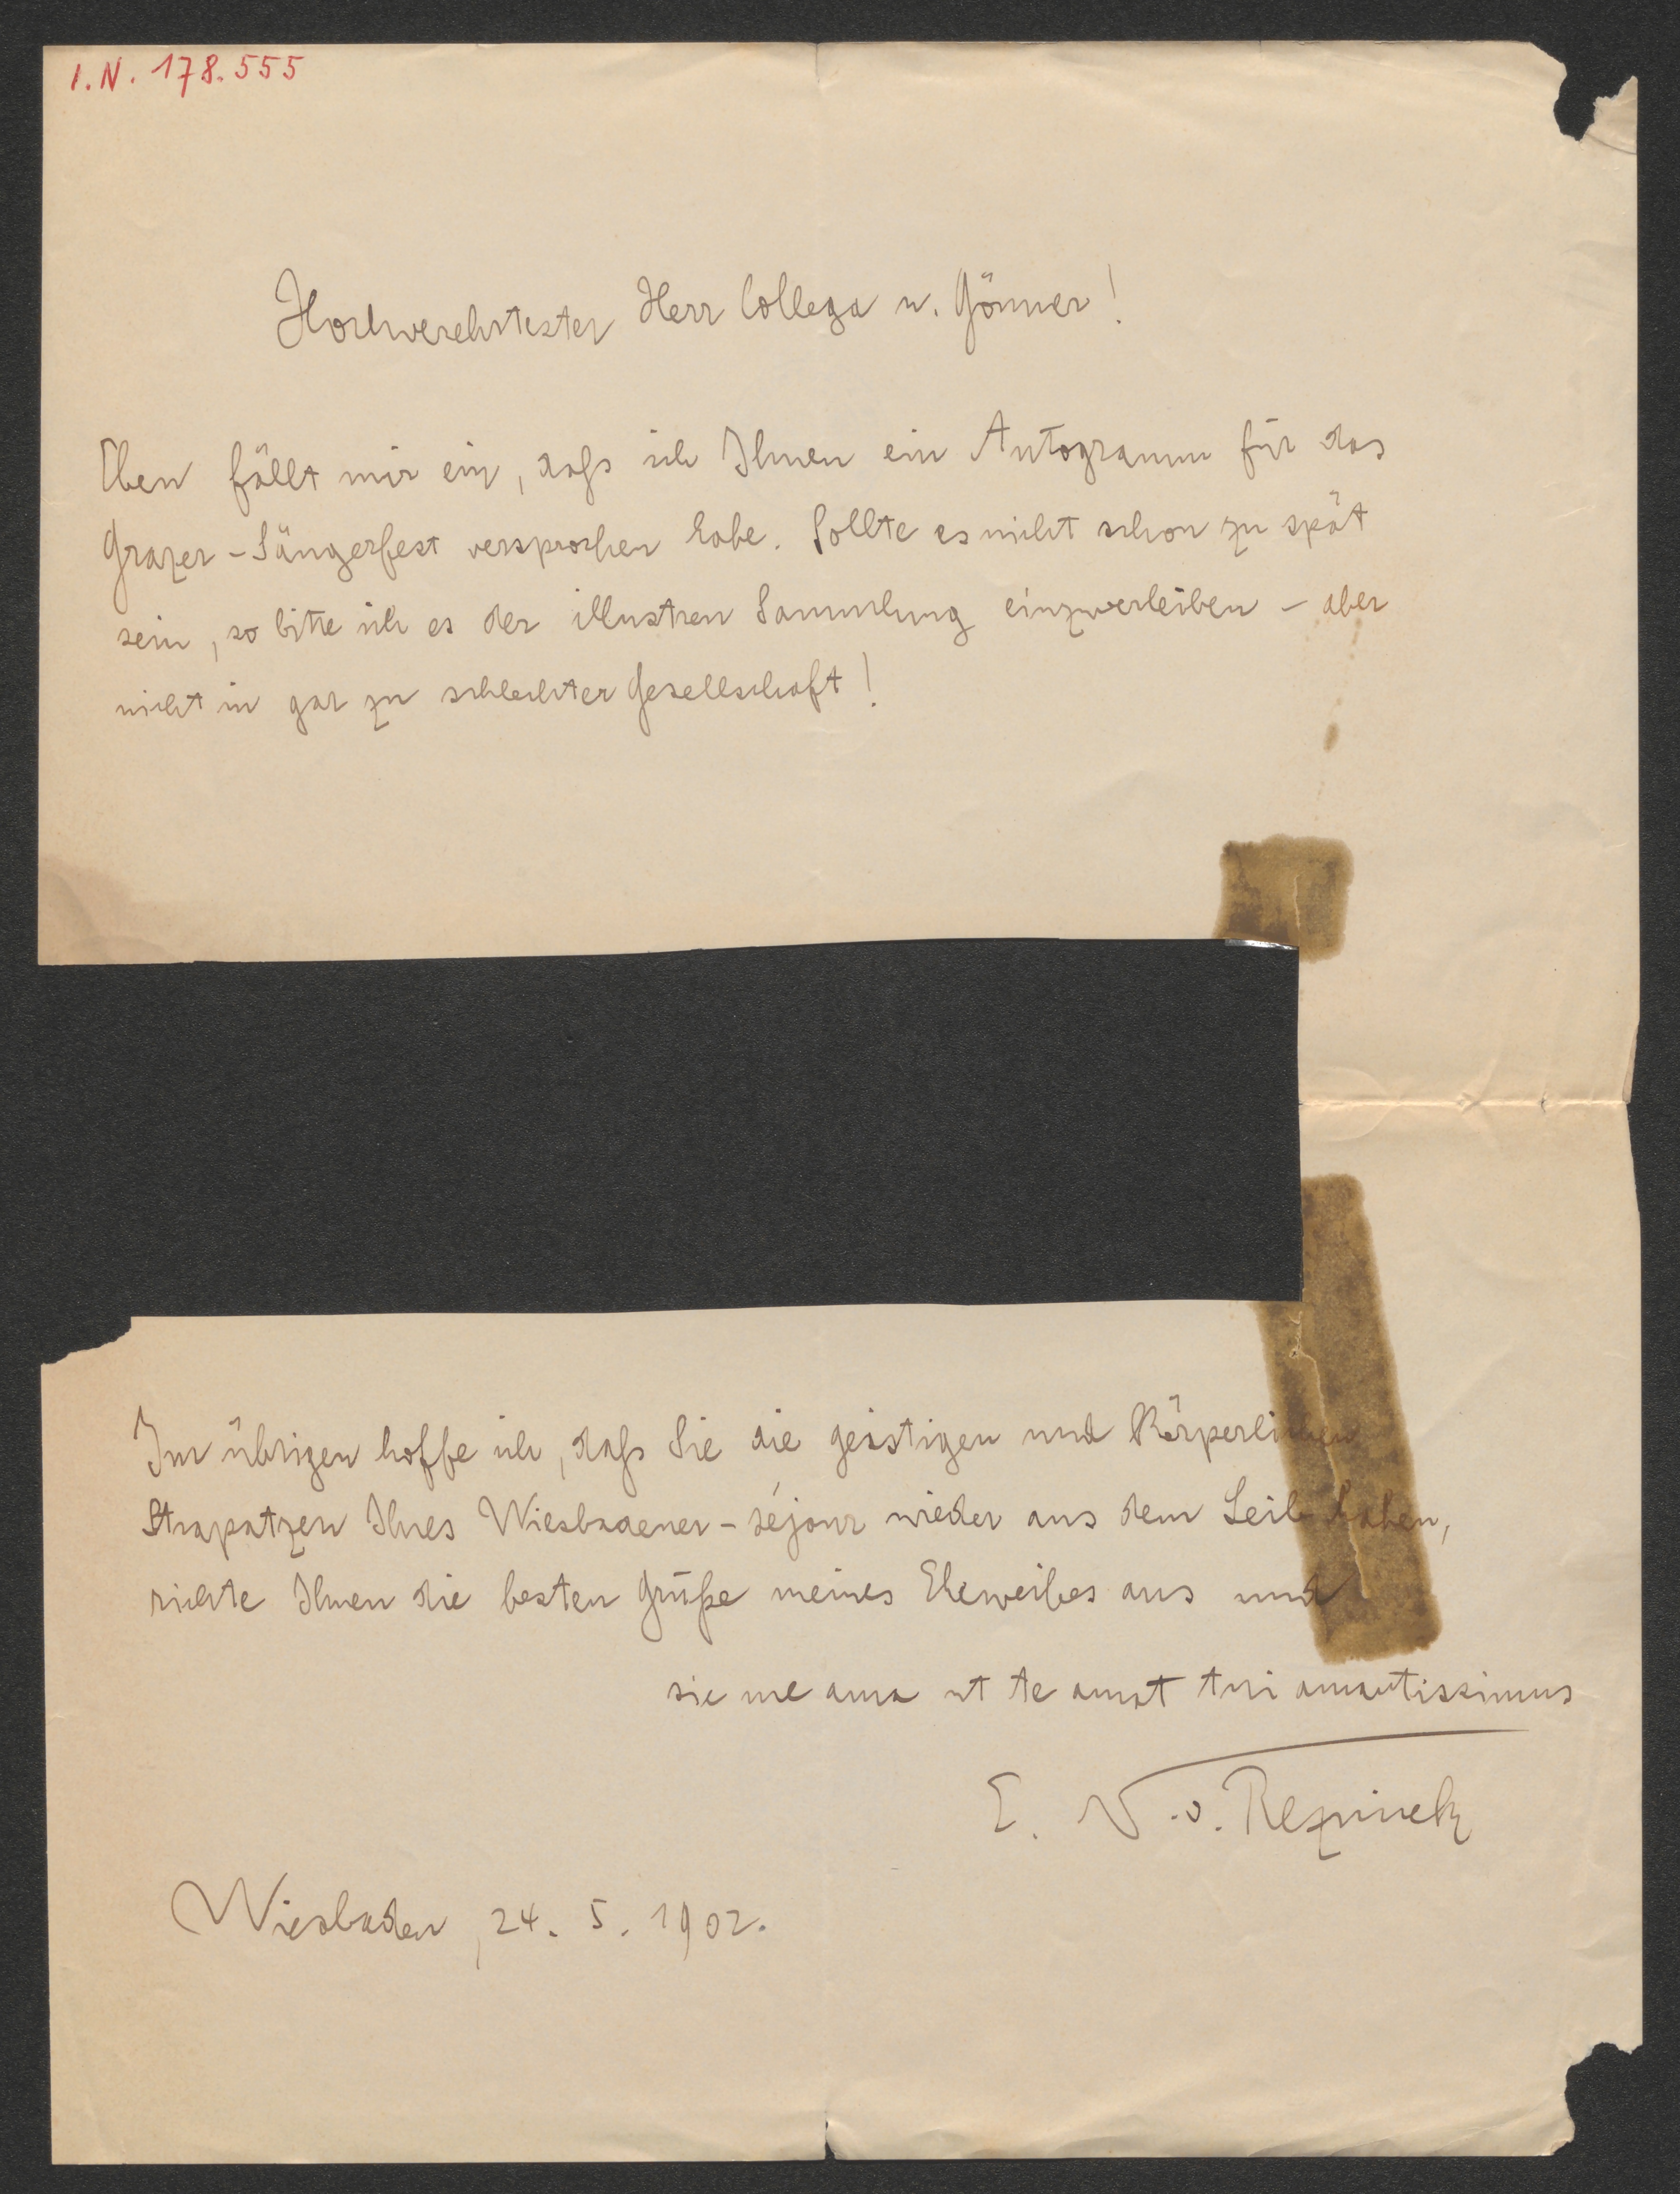 I.N. 178.555
Hochverehrtester Herr Collega u. Gönner!
Eben fällt mir ein, daſs ich Ihnen ein Autogramm für das
Grazer-Sängerfest versprochen habe. Sollte es nicht schon zu spät
sein, so bitte ich es der illustren Sammlung einzuverleiben - aber
nicht in gar zu schlechter Gesellschaft!
Im übrigen hoffe ich, daſs Sie die geistigen und körperlichen
Strapatzen Ihres Wiesbadener-séjour wieder aus dem Leib haben,
richte Ihnen die besten Grüße meines Eheweibes aus und
sic me ama ut te amat tui amantissimus
E. N. v. Reznicek
Wiesbaden, 24. 5. 1902.